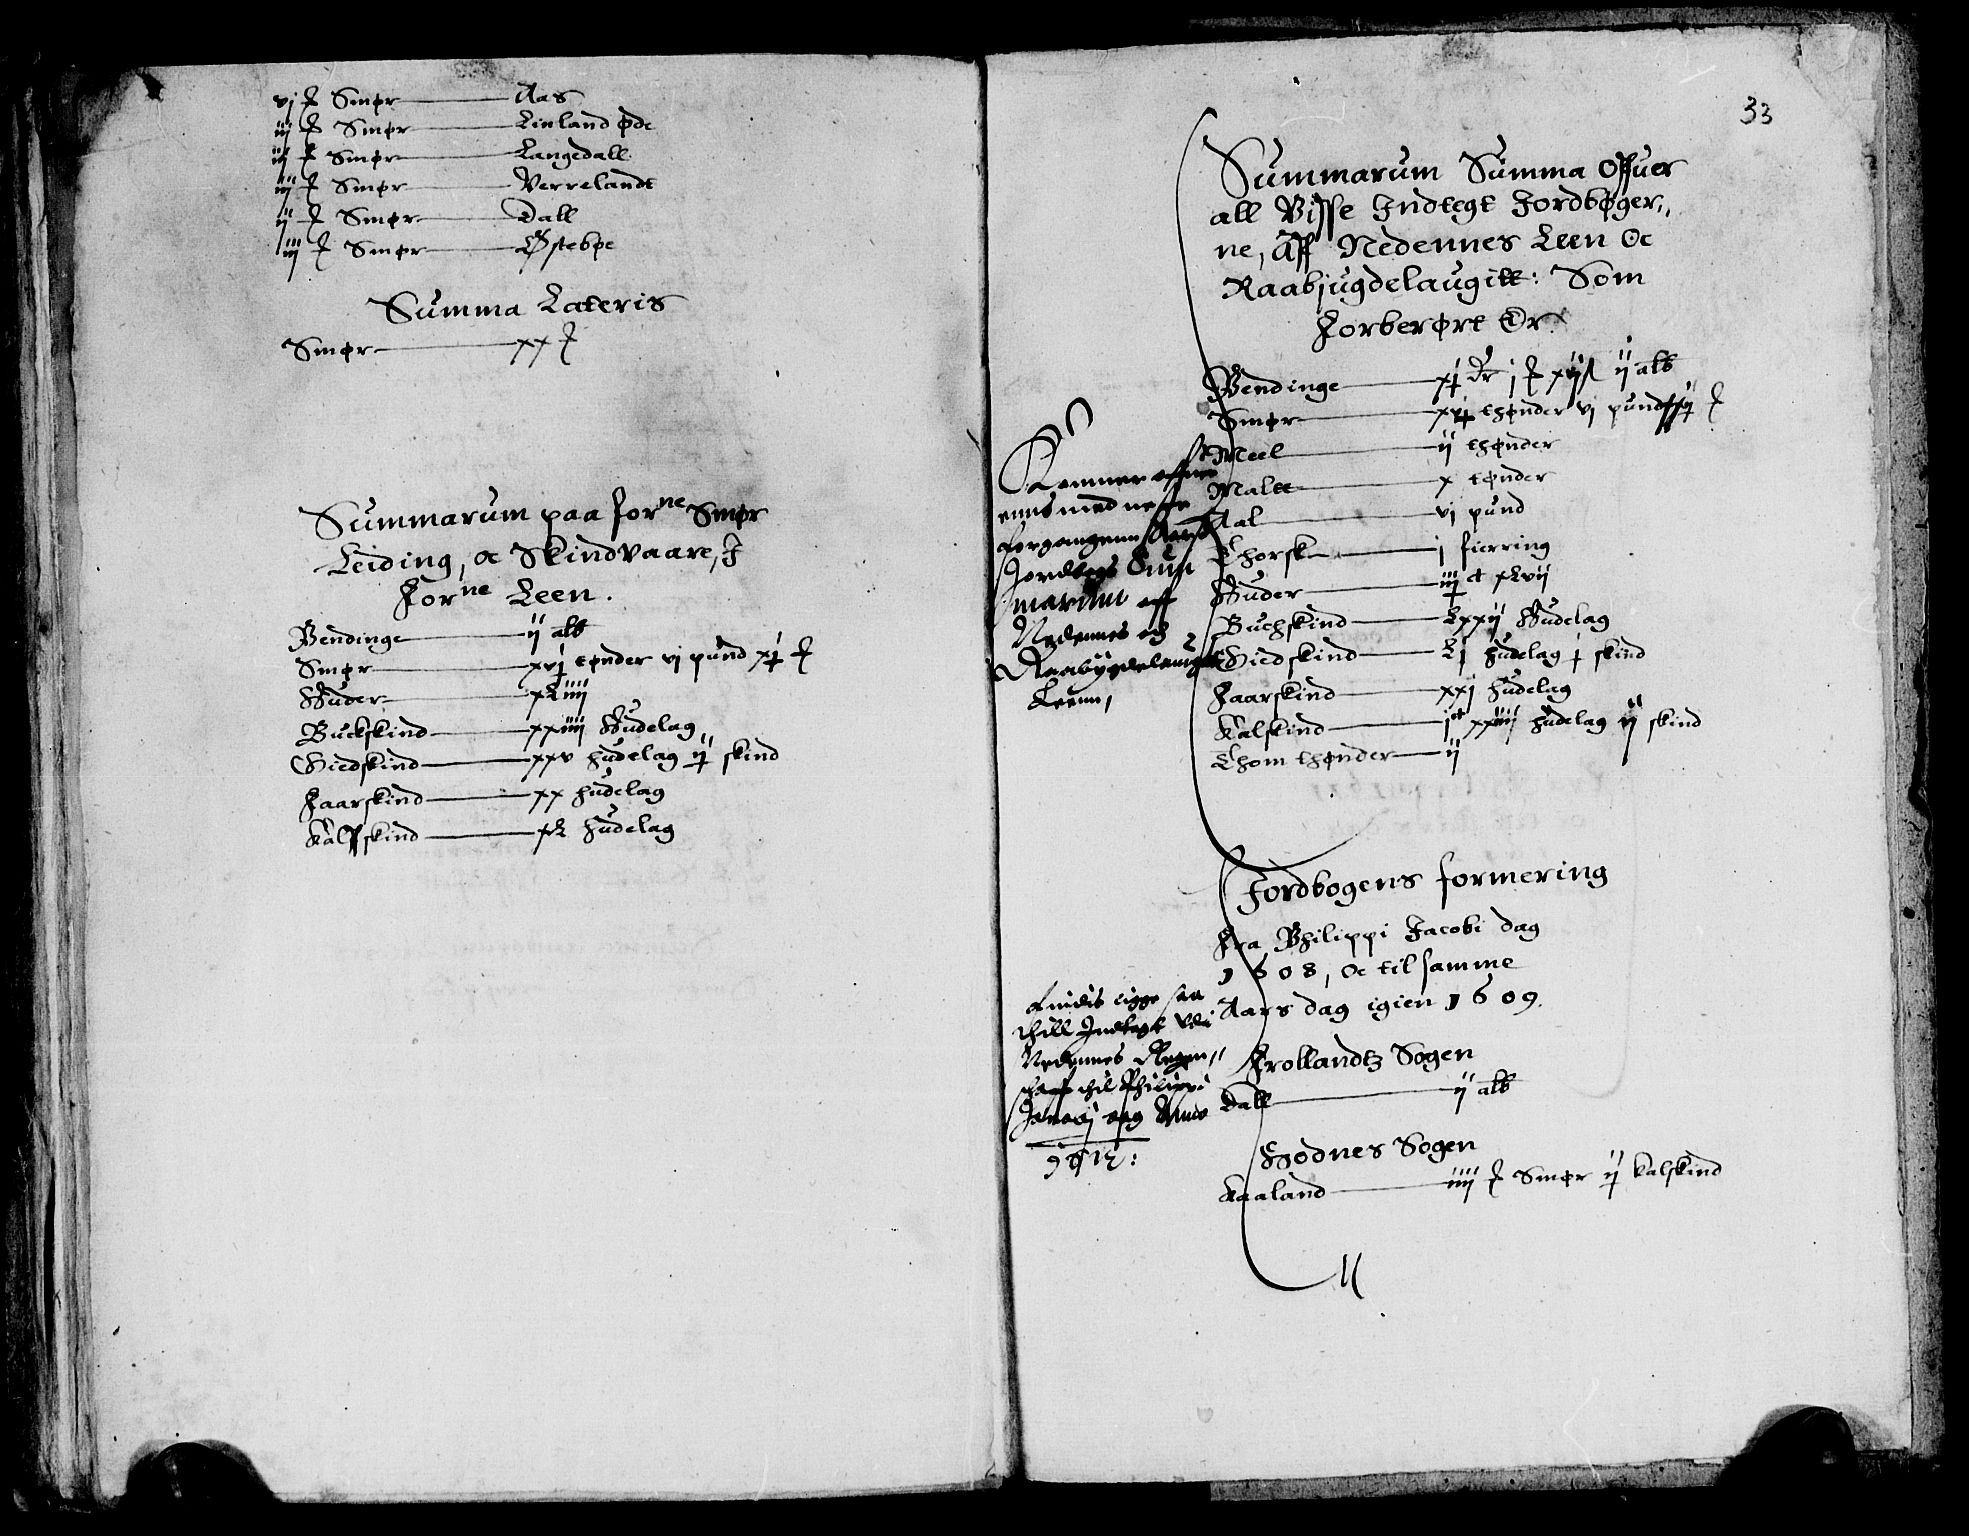 vj ₰ Smør Aas
iij ₰ Smør Linland øde
iij ₰ Smør Langedall
iiij ₰ Smør Verrelandt
ij ₰ Smør Dall
iij ₰ Smør Østebøe
Summa Lateris
Smør xx ₰
Summarum paa forne Smør
Leiding, oc Skindvaare, J
Forne Leen.
Pendinge ij alb
Smør xvj tønder vj pund xj ₰
Huder xLiiij
Buckskind xxiiij Hudelag
Giedskind xxv Hudelag ij skind
Faarskind xx hudelag
Kalffskind xL Hudelag
33
Summarum Summa Offuer
all Visse Indtegt Jordbøger,,
ne, Aff Nedennes Leen Oc
Raabjugdelaugitt: Som
Forberørt Er.
Pendinge xj Dr j ₰ xijs ij alb
Smør xvj thønder vj pund ij ₰
Meel ij thønder
Maltt x tønder
Aal vj pund
Thorsk j fierring
Huder iiijc xLvij
Buchskind Lxxij Hudelag
Giedskind Lj hudelag j skind
Faarskind xxj hudelag
Kalskind jc xxiiij hudelag ij skind
Thom thønder ij
Kommer offuer
enns med neste
forgangenn Aars
Jordbogs Sum
marum aff
Nedennes och
Raabygdelauugs
Leenn,
Jordbogens formering
Fra Philippi Jacobi dag
1608, Oc til samme
Aars dag igien 1609.
Findis ligge saa
thill Indtegt Vdi
Nedennes Regen,,
schaff thil Philippi
Jacobj dag Anno
1612:
Frollandtz Sogen
Dall ij alb
Hodnes Sogen
Kaaland iiij ₰ Smør ij Kalskind